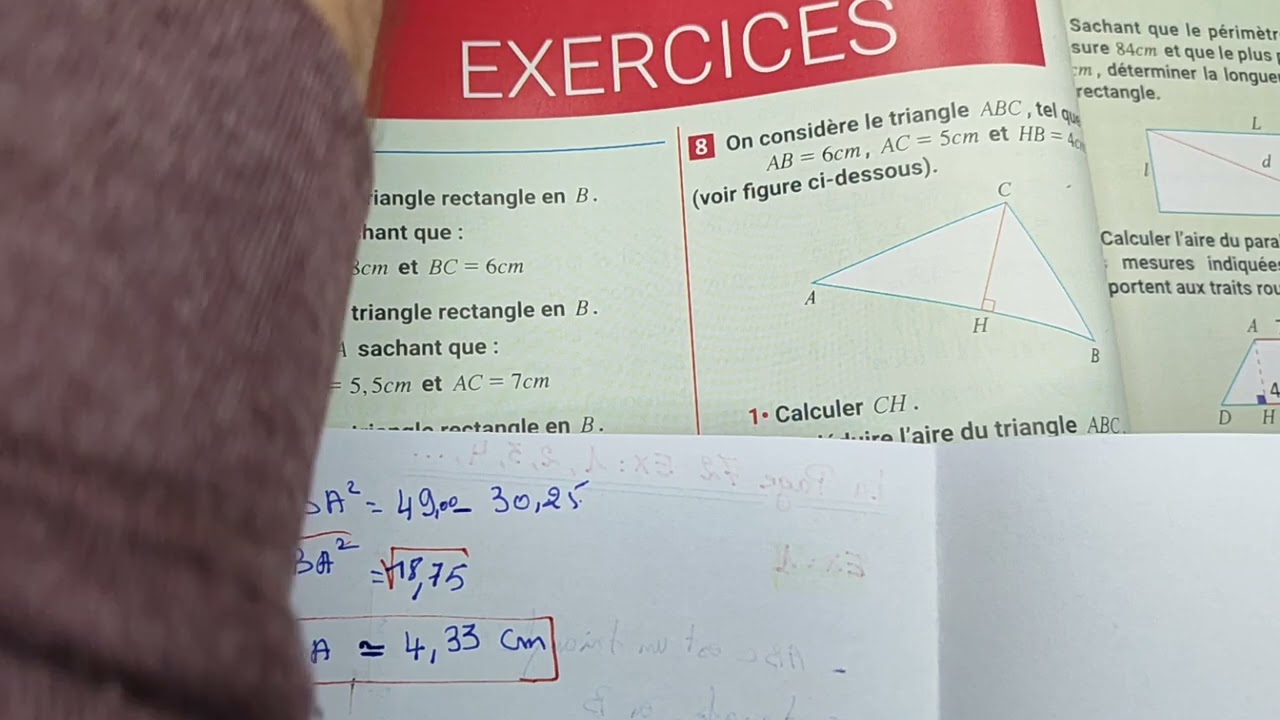 EXERCICES
triangle rectangle en B.
sachant que :
cm et BC = 6cm
triangle rectangle en B.
A sachant que :
= 5,5cm et AC = 7cm
rectangle en B.
8 On considère le triangle ABC, tel que
AB = 6cm, AC = 5cm et HB = 4cm
(voir figure ci-dessous).
C
A
H
B
1• Calculer CH.
l'aire du triangle ABC.
Sachant que le périmètr
sure 84cm et que le plus
cm, déterminer la longue
rectangle.
L
l
d
Calculer l'aire du para
mesures indiquées
portent aux traits rou
A
4
D H
BA² = 49,00 - 30,25
BA² = √18,75
A ≃ 4,33 cm